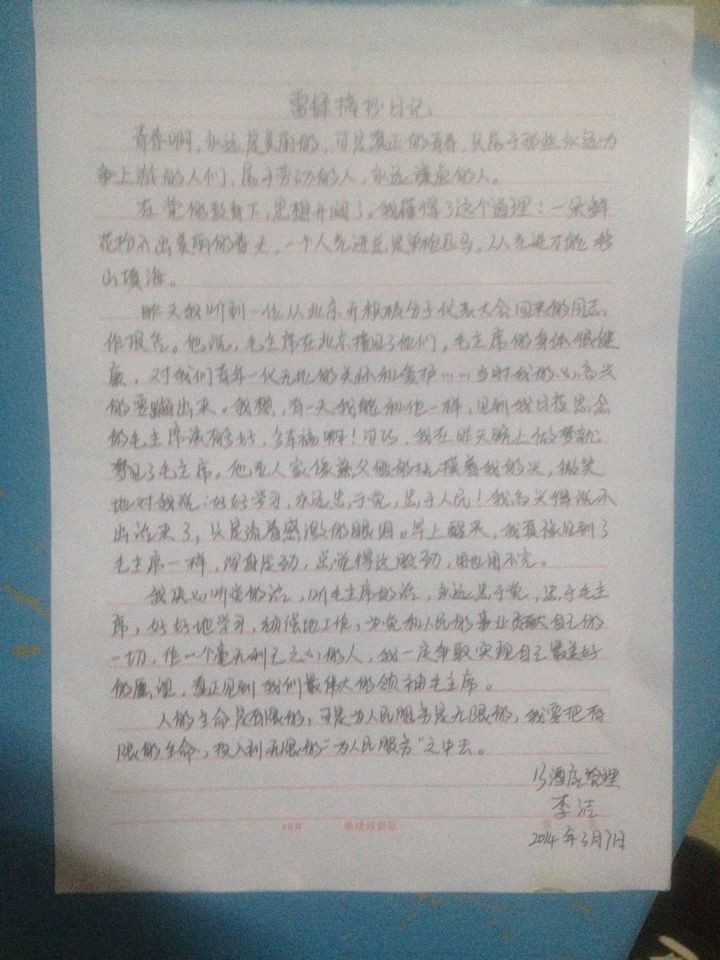 雷锋摘抄日记
青春啊，永远是美丽的，可是真正的青春，只属于那些永远力
争上游的人们，属于劳动的人，永远谦虚的人。
在党的教育下，思想开阔了。我懂得了这个道理：一朵鲜
花扮不出美丽的春天，一个人先进总是单枪匹马，众人先进才能移
山填海。
昨天我听到一位从北京开积极分子代表大会回来的同志，
作报告。他说，毛主席在北京接见了他们，毛主席的身体很健
康，对我们青年一代无比的关怀和爱护……当时我的心高兴
的要蹦出来。我想，有一天我能和他一样，见到我日夜思念
的毛主席该有多好，多幸福啊！可巧，我在昨天晚上做梦就
梦见了毛主席。他老人家像慈父般的抚摸着我的头，微笑
地对我说：好好学习，永远忠于党，忠于人民！我高兴得说不
出话来了，只是流着感激的眼泪。早上醒来，我真像见到了
毛主席一样，浑身是劲，总觉得这股劲，用也用不完。
我决心听党的话，听毛主席的话，永远忠于党，忠于毛主
席，好好地学习，顽强地工作，为党和人民的事业贡献自己的
一切，作一个毫无利己之心的人，我一定争取实现自己最美好
的愿望，真正见到我们最伟大的领袖毛主席。
人的生命是有限的，可是为人民服务是无限的，我要把有
限的生命，投入到无限的“为人民服务”之中去。
13酒店管理
李洁
2014年3月7日
16开 单线报告纸